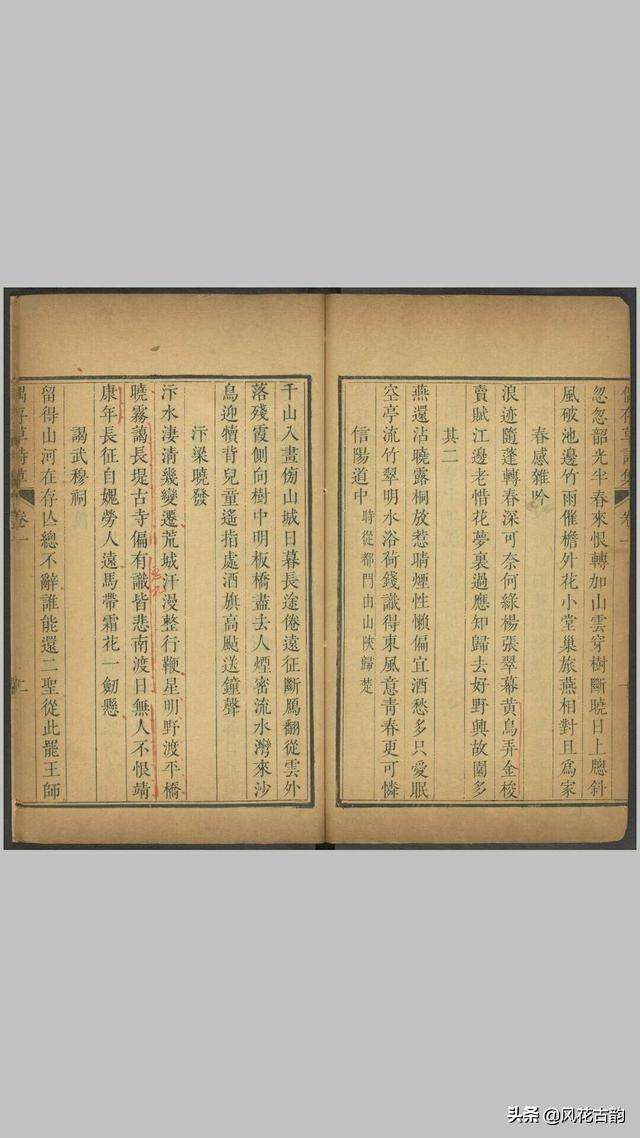 忽忽韶光半春來恨轉加山雲穿樹斷曉日上牕斜
風破池邊竹雨催檐外花小堂巢旅燕相對且為家
春感雜吟
浪迹隨蓬轉春深可奈何綠楊張翠幕黃鳥弄金梭
賣賦江邊老惜花夢裏過應知歸去好野興故園多
其二
燕還沾曉露桐放惹晴煙性懶偏宜酒愁多只愛眠
空亭流竹翠明水浴荷錢識得東風意青春更可憐
信陽道中 時從都門由山陜歸楚
千山入畫傍山城日暮長途倦遠征斷鴈翻從雲外
落殘霞側向樹中明板橋盡去人煙密流水灣來沙
鳥迎犢背兒童遙指處酒旗高颭送鐘聲
汴梁曉發
汴水淒清幾變遷荒城汗漫整行鞭星明野渡平橋
曉霧藹長堤古寺偏有識皆悲南渡日無人不恨靖
康年長征自媿勞人遠馬帶霜花一劒懸
謁武穆祠
留得山河在存亾總不辭誰能還二聖從此罷王師
偶存草詩集 卷一
头条 @风花古韵